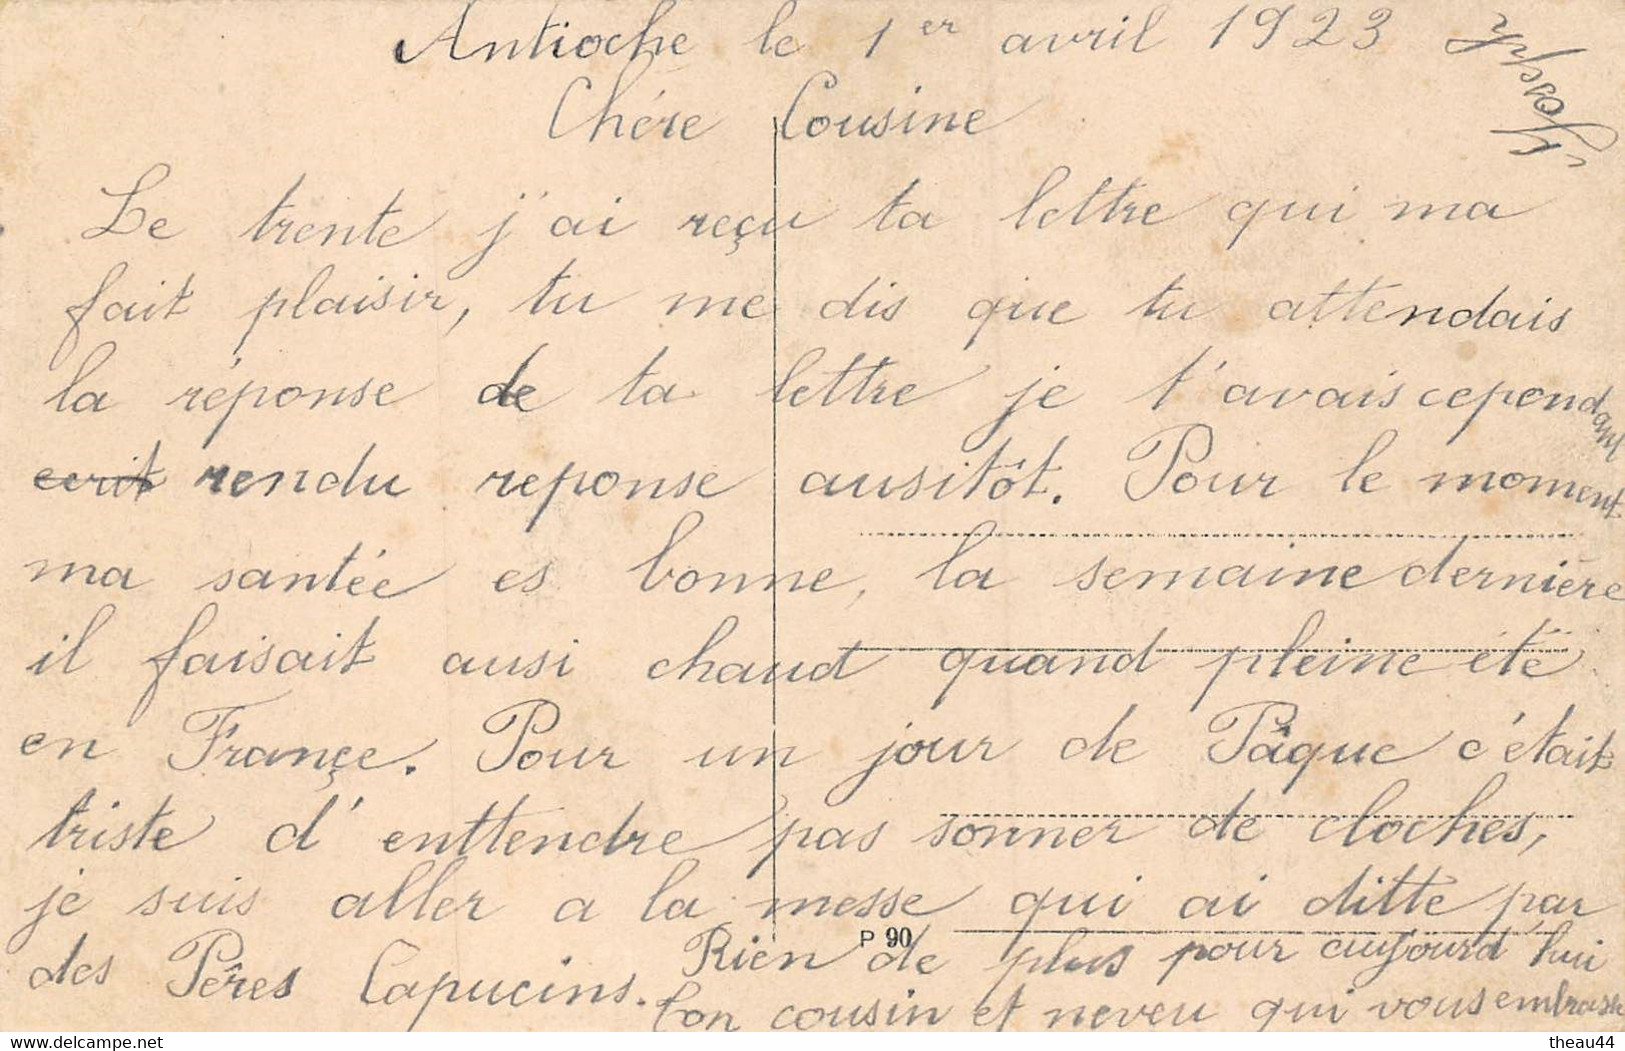 Antioche le 1er avril 1923
Chére Cousine
Le trente j'ai reçu ta lettre qui ma
fait plaisir, tu me dis que tu attendais
la réponse de ta lettre je t'avais cependant
ecrit rendu reponse ausitôt. Pour le moment
ma santée es bonne, la semaine dernière
il faisait ausi chaud quand pleine été
en Françe. Pour un jour de Pâque c'était
triste d'enttendre pas sonner de cloches,
je suis aller a la messe qui ai ditte par
des Pêres Capucins. Rien de plus pour aujourd'hui
Ton cousin et neveu qui vous embrasse
Joseph
P 90
delcampe.net
theau44